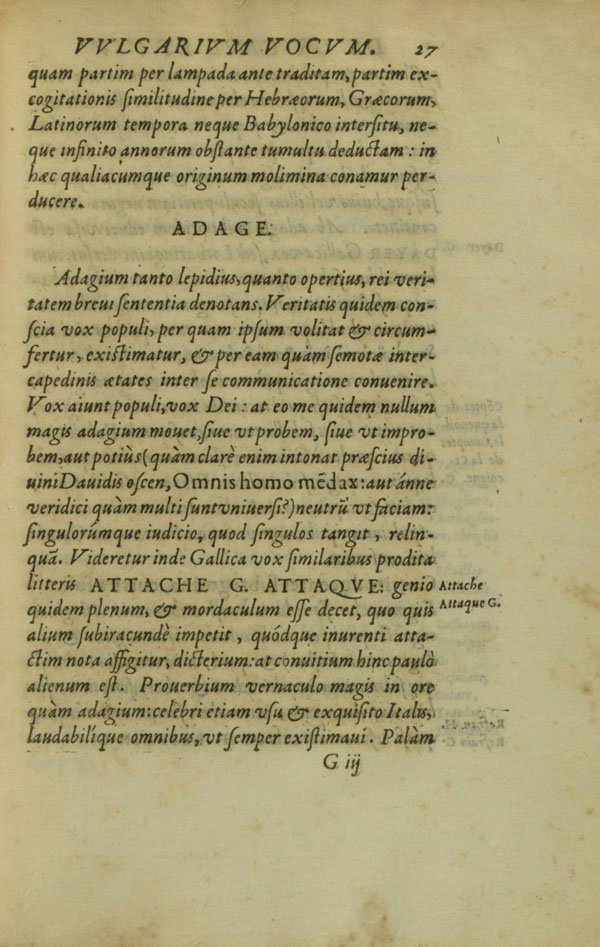 VVLGARIVM VOCVM. 27
quam partim per lampada ante traditam, partim ex-
cogitationis ſimilitudine per Hebræorum, Græcorum,
Latinorum tempora neque Babylonico interſitu, ne-
que infinito annorum obſtante tumultu deductam : in
hæc qualiacumque originum molimina conamur per-
ducere.
ADAGE.
Adagium tanto lepidius, quanto opertius, rei veri-
tatem breui ſententia denotans. Veritatis quidem con-
ſcia vox populi, per quam ipſum volitat & circum-
fertur, exiſtimatur, & per eam quàm ſemotæ inter-
capedinis ætates inter ſe communicatione conuenire.
Vox aiunt populi, vox Dei : at eo me quidem nullum
magis adagium mouet, ſiue vt probem, ſiue vt impro-
bem, aut potiùs (quàm clarè enim intonat præſcius di-
uini Dauidis oſcen, Omnis homo mẽdax: aut ánne
veridici quàm multi ſunt vniuerſi?) neutrũ vt faciam:
ſingulorúmque iudicio, quod ſingulos tangit, relin-
quã. Videretur inde Gallica vox ſimilaribus prodita
litteris ATTACHE G. ATTAQVE: genio
Attache
quidem plenum, & mordaculum eſſe decet, quo quis
Attaque G.
alium ſubiracundè impetit, quódque inurenti atta-
ctim nota affigitur, dicterium: at conuitium hinc paulò
alienum eſt. Prouerbium vernaculo magis in ore
quàm adagium: celebri etiam vſu & exquiſito Italis,
laudabilíque omnibus, vt ſemper exiſtimaui. Palàm
G iij